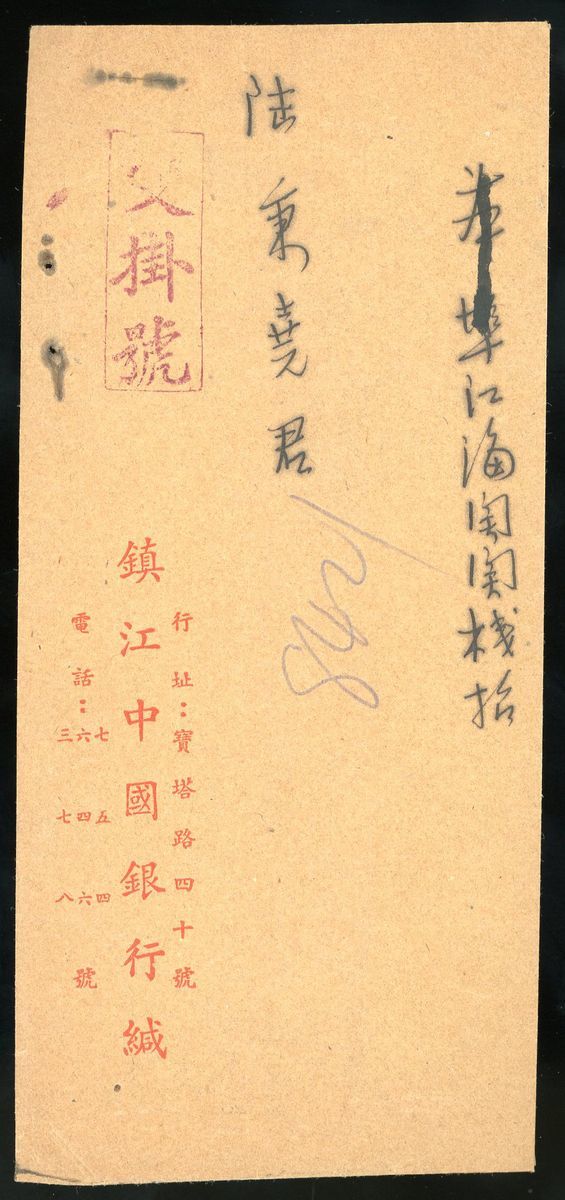 埠江海関関栈
陆秉堯君
㕛掛號
行址：寶塔路四十號
鎮江中國銀行緘
電話：
七五四
六四六
三七八
號